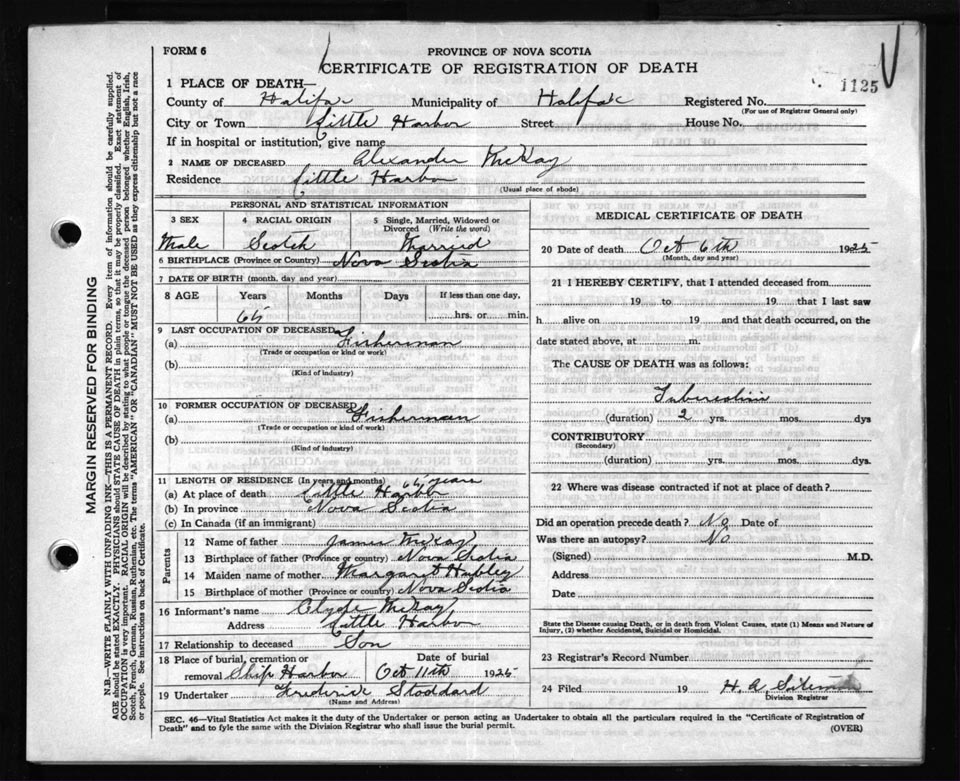 FORM 6
PROVINCE OF NOVA SCOTIA
CERTIFICATE OF REGISTRATION OF DEATH
1125
1 PLACE OF DEATH—
County of Halifax Municipality of Halifax Registered No.
(For use of Registrar General only)
City or Town Little Harbor Street House No.
If in hospital or institution, give name
2 NAME OF DECEASED Alexander McKay
Residence Little Harbor
(Usual place of abode)
PERSONAL AND STATISTICAL INFORMATION
3 SEX 4 RACIAL ORIGIN 5 Single, Married, Widowed or Divorced (Write the word)
Male Scotch Married
6 BIRTHPLACE (Province or Country) Nova Scotia
7 DATE OF BIRTH (month, day and year)
8 AGE Years Months Days If less than one day,
65 hrs. or min.
9 LAST OCCUPATION OF DECEASED
(a) Fisherman
(Trade or occupation or kind or work)
(b)
(Kind of industry)
10 FORMER OCCUPATION OF DECEASED
(a) Fisherman
(Trade or occupation or kind of work)
(b)
(Kind of industry)
11 LENGTH OF RESIDENCE (In years and months) 65 years
(a) At place of death Little Harbor
(b) In province Nova Scotia
(c) In Canada (if an immigrant)
Parents
12 Name of father James McKay
13 Birthplace of father (Province or country) Nova Scotia
14 Maiden name of mother Margaret Hubley
15 Birthplace of mother (Province or country) Nova Scotia
16 Informant's name Clyde McKay
Address Little Harbor
17 Relationship to deceased Son
18 Place of burial, cremation or removal Ship Harbor Date of burial Oct 11th 1925
19 Undertaker Frederick Stoddard
(Name and Address)
MEDICAL CERTIFICATE OF DEATH
20 Date of death Oct 6th 1925
(Month, day and year)
21 I HEREBY CERTIFY, that I attended deceased from
19 to 19 that I last saw
h alive on 19 and that death occurred, on the
date stated above, at m.
The CAUSE OF DEATH was as follows:
(duration) 2 yrs. mos. dys
CONTRIBUTORY
(Secondary)
(duration) yrs. mos. dys.
22 Where was disease contracted if not at place of death?
Did an operation precede death? No Date of
Was there an autopsy? No
(Signed) M.D.
Address
Date
State the Disease causing Death, or in death from Violent Causes, state (1) Means and Nature of
Injury, (2) whether Accidental, Suicidal or Homicidal.
23 Registrar's Record Number
24 Filed 19 H. A.
Division Registrar
SEC. 46—Vital Statistics Act makes it the duty of the Undertaker or person acting as Undertaker to obtain all the particulars required in the "Certificate of Registration of
Death" and to fyle the same with the Division Registrar who shall issue the burial permit.
(OVER)
MARGIN RESERVED FOR BINDING
N.B.—WRITE PLAINLY WITH UNFADING INK—THIS IS A PERMANENT RECORD. Every item of information should be carefully supplied.
AGE should be stated EXACTLY. PHYSICIANS should STATE CAUSE OF DEATH in plain terms, so that it may be properly classified. Exact statement of
OCCUPATION is very important. RACIAL ORIGIN will be described by stating to what people or tongue the deceased person belonged whether English, Irish,
Scotch, French, German, Russian, Ruthenian, etc. The terms "AMERICAN" OR "CANADIAN" MUST NOT BE USED as they express citizenship but not a race
or people. See instructions on back of Certificate.